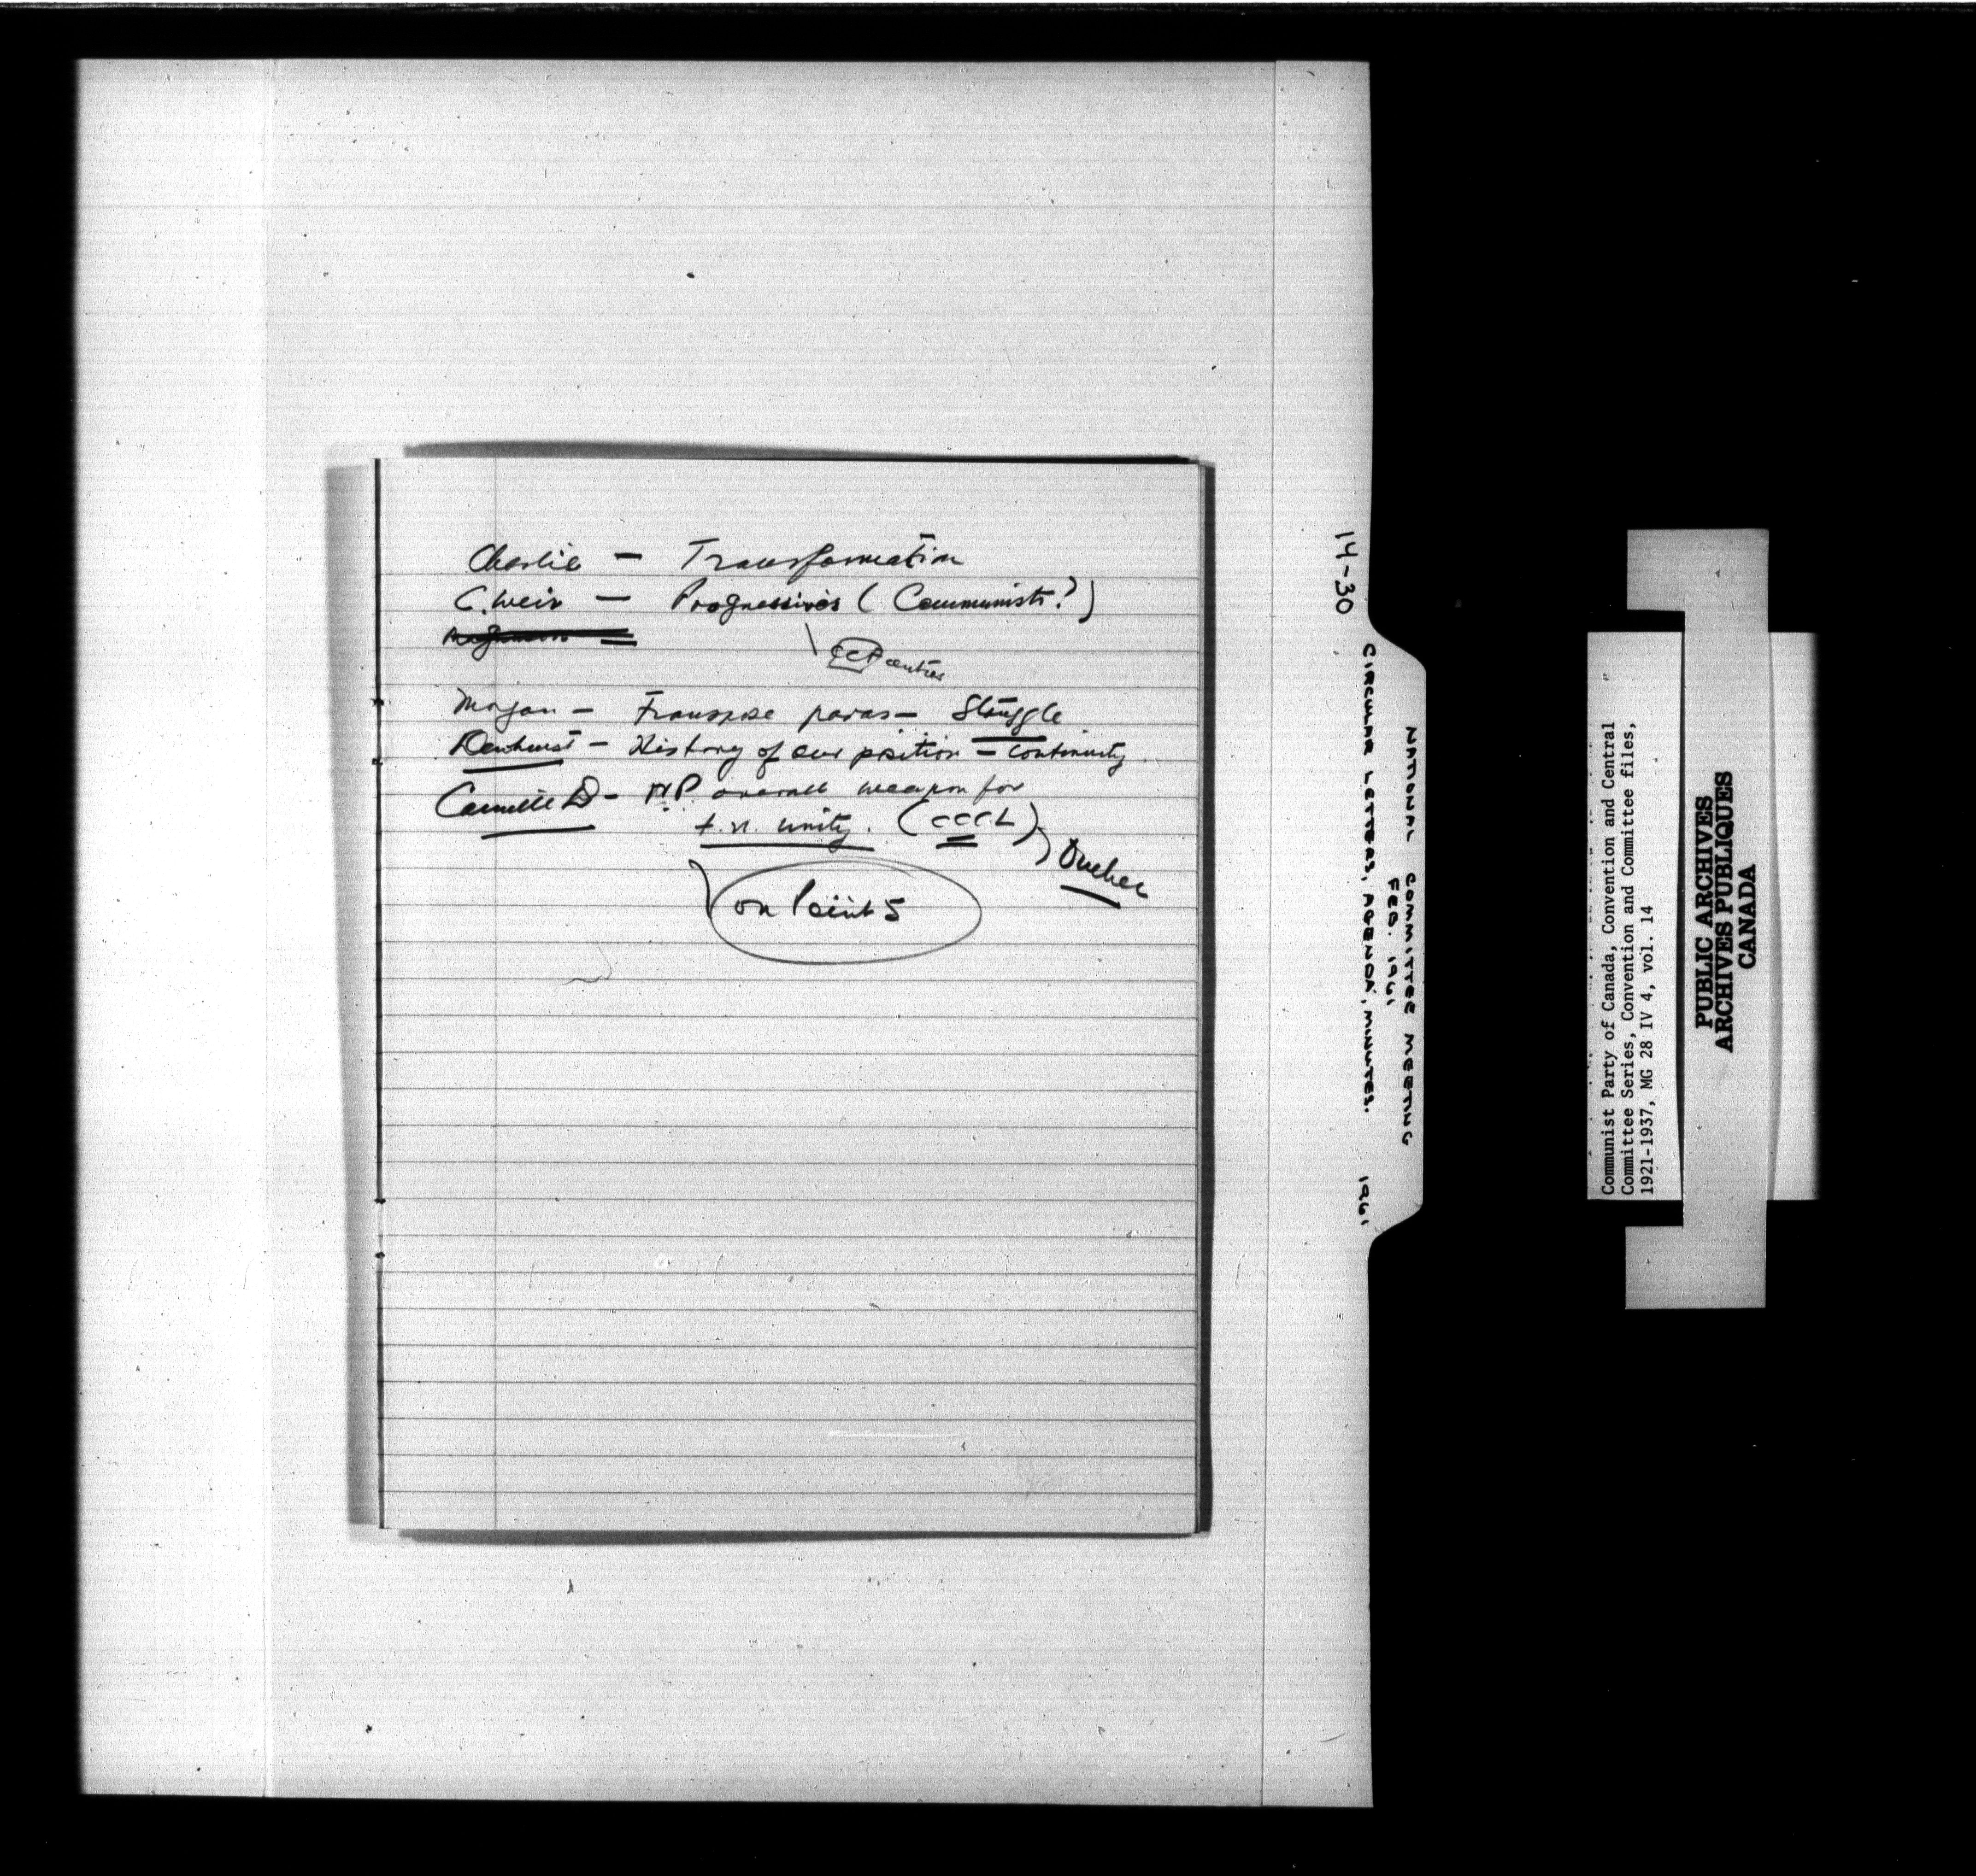 Charlie — Transformation
C. Weir — Progressives ( Communists ? )
CCF centres
Morgan — Transpose paras — Struggle
Dewhurst — History of our position — continuity.
Camille D — N.P. overall weapon for
t.u. unity. (CCCL)
Quebec
on Point 5
14-30
CIRCULAR LETTERS, AGENDA, MINUTES. 1961
FEB. 1961
NATIONAL COMMITTEE MEETING
Communist Party of Canada, Convention and Central
Committee Series, Convention and Committee files,
1921-1937, MG 28 IV 4, vol. 14
PUBLIC ARCHIVES
ARCHIVES PUBLIQUES
CANADA